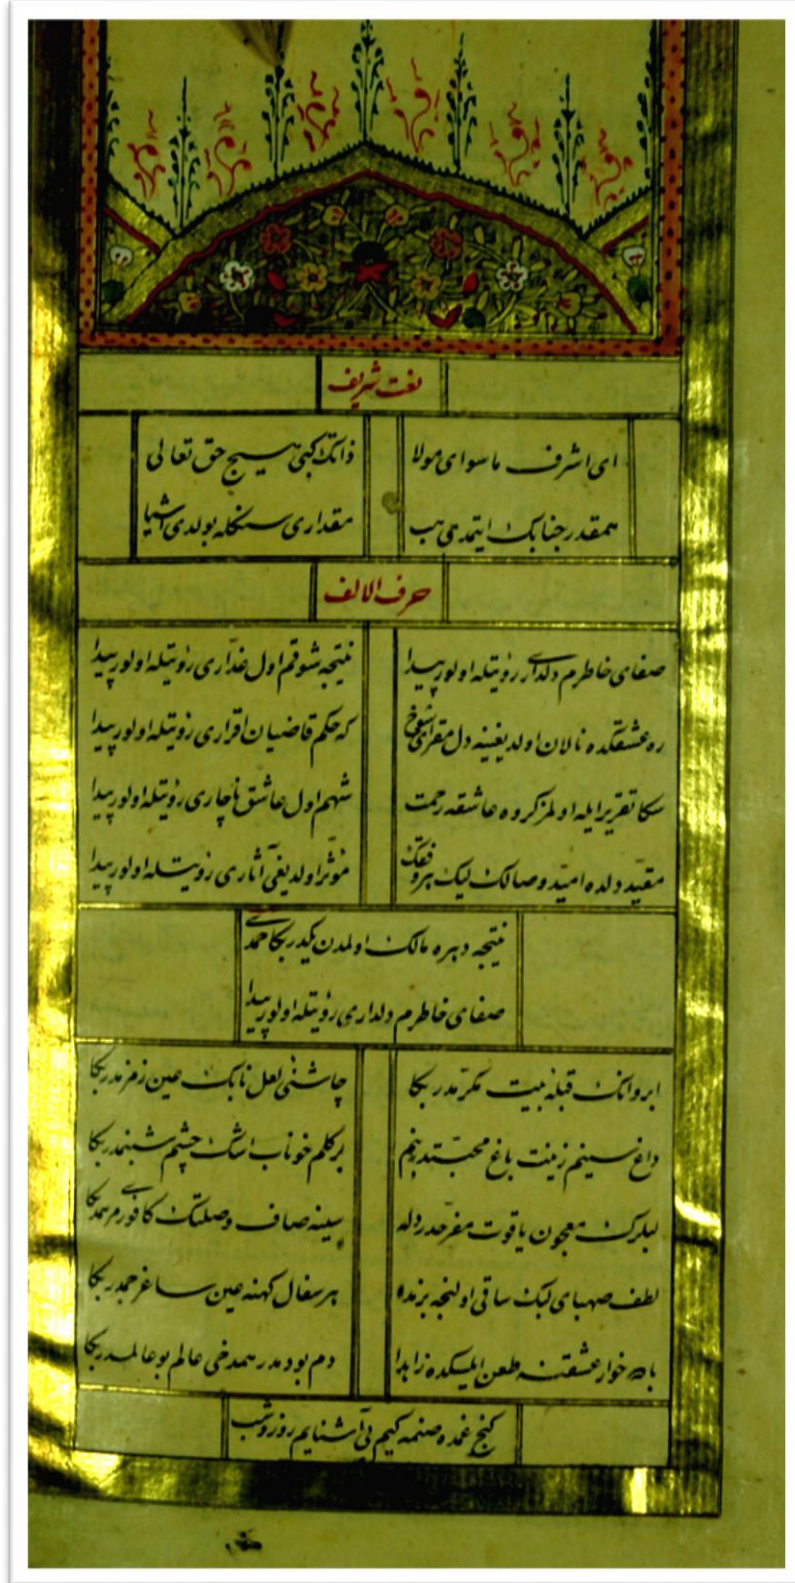 نعت شریف
ای اشرف ماسوای مولا ذاتك كبی هیچ حق تعالی
همقدر جنابك ایتمدی هب مقداری سنكله بولدی اشیا
حرف الالف
صفای خاطرم دلداری رؤیتله اولور پیدا نتیجه شوقم اول غدّاری رؤیتله اولور پیدا
ره عشقكده نالان اولدیغینه دل مقر ای شوخ كه حكم قاضیان اقراری رؤیتله اولور پیدا
سكا تقریر ایله اولمز كروه عاشقه رحمت شهم اول عاشق ناچاری رؤیتله اولور پیدا
مقیّد دلده امیّد وصالك لیك مؤثر اولدیغی آثاری رؤیتله اولور پیدا
نتیجه دهره مالك اولمدن كیدر بكا حمدی
صفای خاطرم دلداری رؤیتله اولور پیدا
ابروانك قبلهٔ بیت مكرّمدر بكا چاشنیٔ لعل نابك عین زمزمدر بكا
داغ سینم زینت باغ محبّتدر بنم بركلم خوناب اشك چشم شبنمدر بكا
لبلرك معجون یاقوت مفرّحدر دله سینه صاف وصلتك كافوری مرهمدر بكا
لطف صهبای لبك ساقی اولنجه بزمده هر سفال كهنه عین ساغر جمدر بكا
باده خوار عشقنه طعن ایلیسكده زاهدا دم بو دمدر همدخی عالم بو عالمدر بكا
كنج غمده صنمه كیم بی آشنایم روز و شب